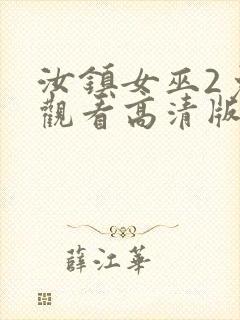 汝鎮女巫2
觀看高清版
薛江華